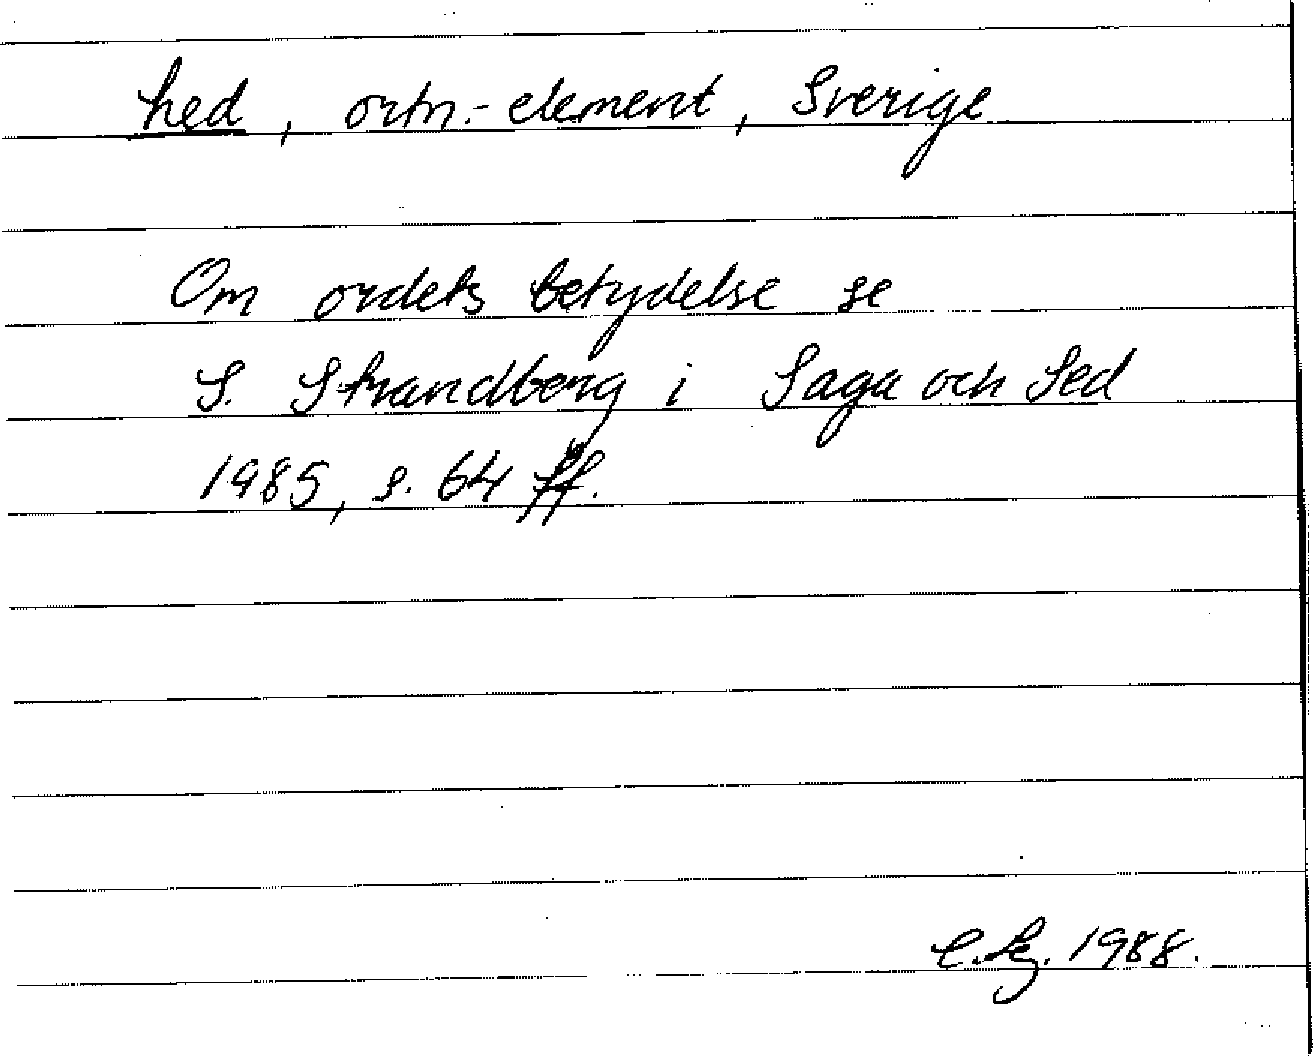 hed, ortn.-element, Sverige
Om ordets betydelse se
S. Strandberg i Saga och Sed
1985, s. 64 ff.
1988.